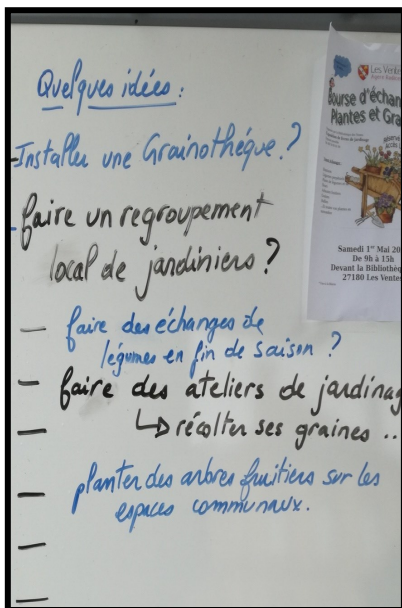 Quelques idées :
- Installer une Grainothéque ?
- faire un regroupement
local de jardiniers ?
- faire des échanges de
légumes en fin de saison ?
- faire des ateliers de jardinag
↳ récolter ses graines ..
- planter des arbres fruitiers sur les
espaces communaux.
Les Vente
Bourse d'échan
Plantes et Gra
Samedi 1er Mai 20
De 9h à 15h
Devant la Bibliothèq
27180 Les Ventes